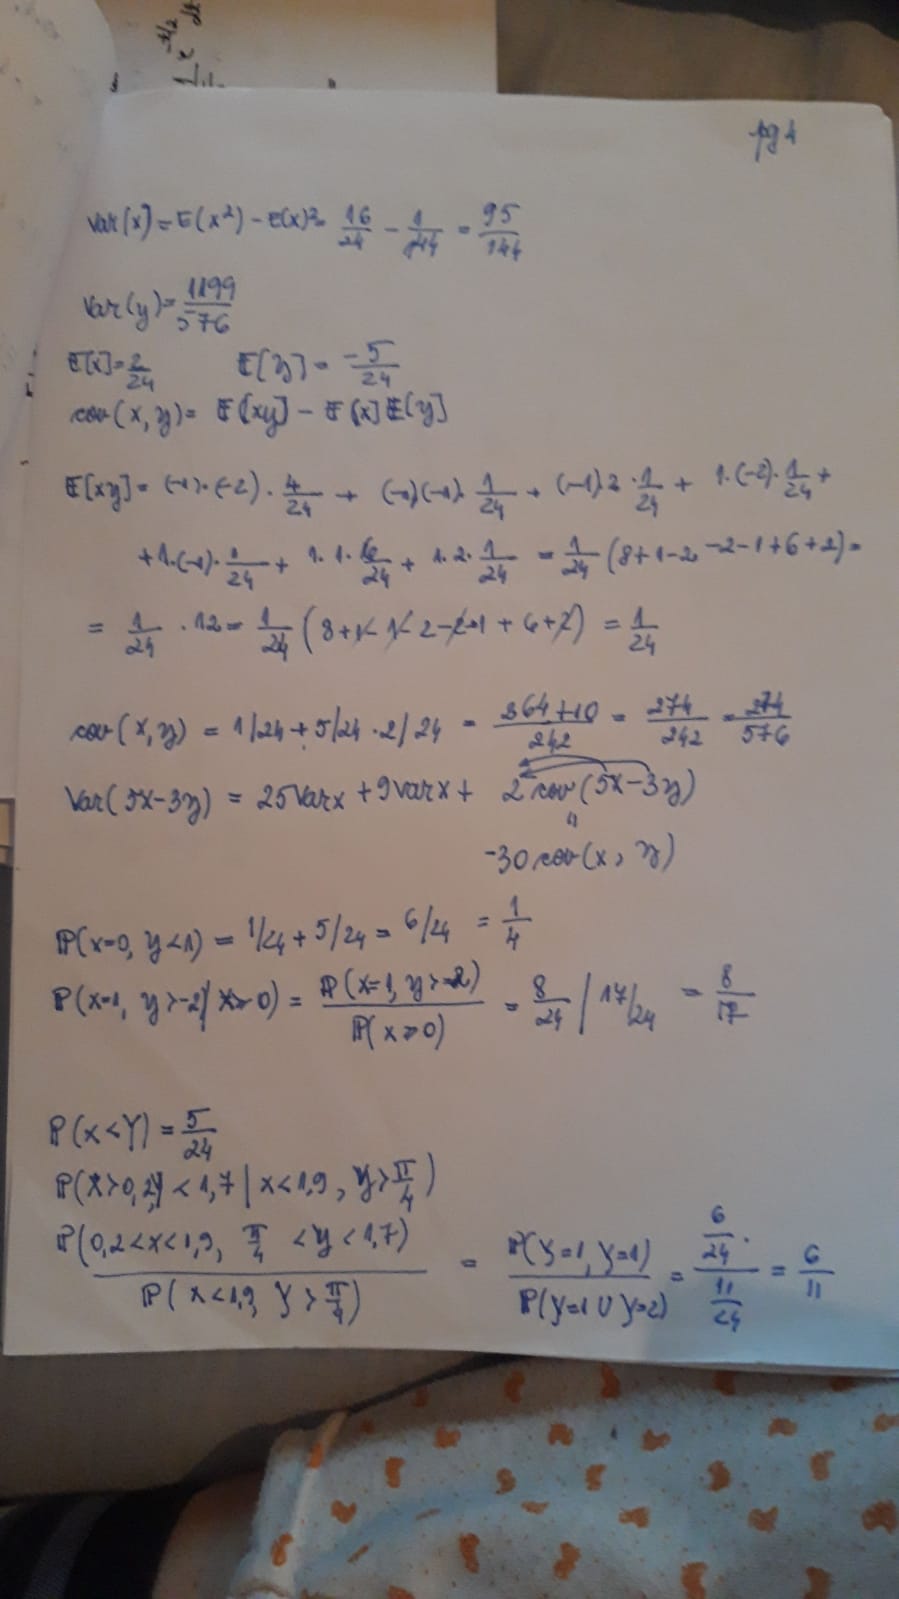 pg 4
Var[x] = E(x²) - E(x)² = 16/24 - 1/144 = 95/144
Var(y) = 1199/576
E[x] = 2/24 E[y] = -5/24
cov(x, y) = E[xy] - E[x]E[y]
E[xy] = (-1)·(-2)·4/24 + (-1)(-1)·1/24 + (-1)2·1/24 + 1·(-2)·1/24 +
+ 1·(-1)·1/24 + 1·1·6/24 + 1·2·1/24 = 1/24 (8+1-2-2-1+6+2) =
= 1/24 · 12 = 1/24 ( 8 + 2 + 6 + ) = 1/24
cov(x, y) = 1/24 + 5/24 · 2/24 = 264+10/242 = 274/242 = 274/576
Var(5x-3y) = 25Varx + 9varx + 2cov(5x-3y)
"
-30cov(x, y)
P(x=0, y<1) = 1/24 + 5/24 = 6/24 = 1/4
P(x=1, y>-2 | x≥0) = P(x=1, y>-2)/P(x≥0) = 8/24 | 17/24 = 8/17
P(x<Y) = 5/24
P(x>0,2, y<1,7 | x<1,9, y>π/4)
P(0,2<x<1,9, π/4<y<1,7)/P(x<1,9, y>π/4) = P(y=1, y=1)/P(y=1 ∪ y=2) = 6/24·/11/24 = 6/11